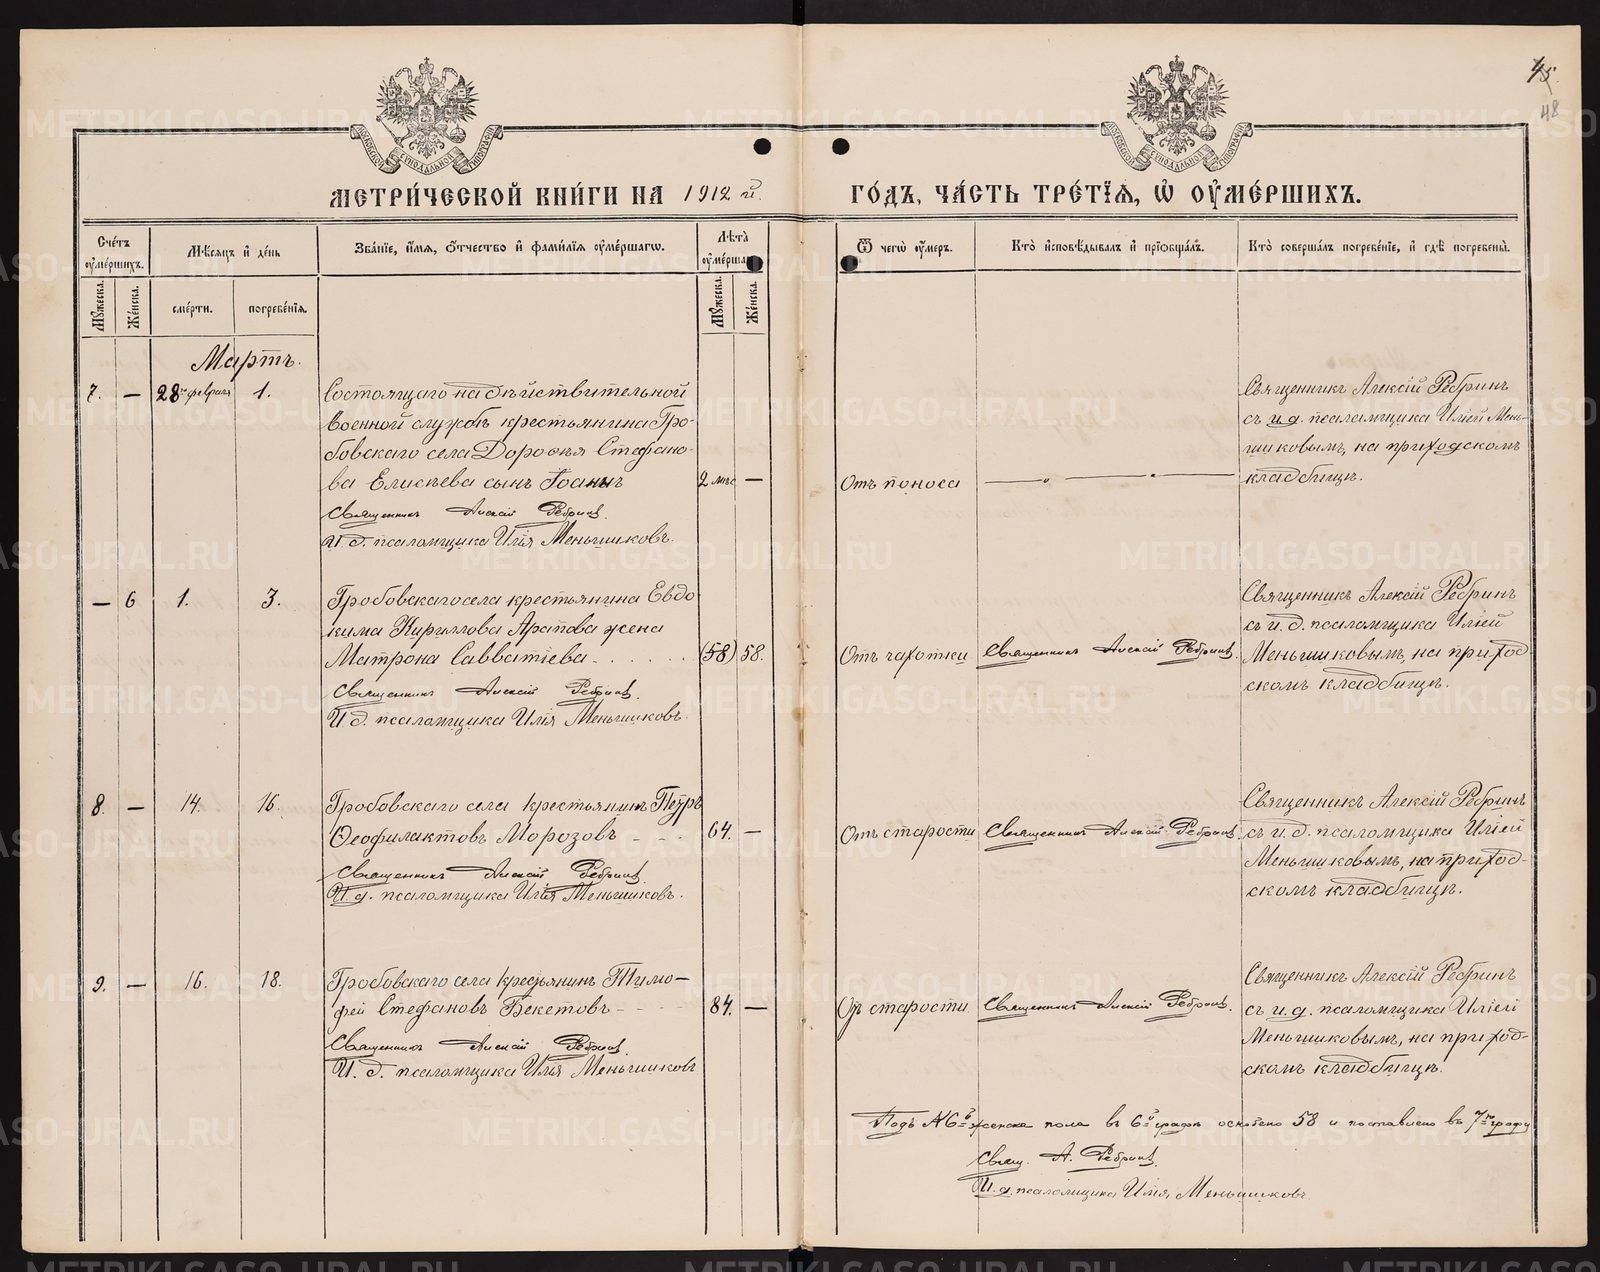 45
48
МЕТРИ́ЧЕСКОЙ КНИ́ГИ НА 1912 й. ГО́ДЪ, ЧА́СТЬ ТРЕ́ТЇѦ, Ѡ҆ ОУ҆МЕ́РШИХЪ.
Сче́тъ оу҆ме́ршихъ.
Мꙋ́жеска.
Же́нска.
Мѣ́сѧцъ и҆ де́нь
сме́рти.
погребе́нїѧ.
Зва́нїе, и҆́мѧ, ѻ҆́тчество и҆ фами́лїѧ оу҆ме́ршагѡ.
Лѣ́та оу҆ме́рша
Мꙋ́жеска.
Же́нска.
Ѿ чегѡ̀ оу҆́меръ.
Кто̀ и҆сповѣ́дывалъ и҆ прїѡбща́лъ.
Кто̀ соверша́лъ погребе́нїе, и҆ гдѣ̀ погребены̀.
Мартъ.
7. — 28го февраля 1.
Состоящаго на дѣйствительной
военной службѣ крестьянина Гро-
бовскаго села Дороѳея Стефано-
ва Елисѣева сынъ Іоаннъ
2 мѣс —
Священникъ Алексій Ребринъ.
И. д. псаломщика Илія Меньшиковъ.
Отъ поноса
Священникъ Алексій Ребринъ
съ и. д. псаломщика Иліей Мень-
шиковымъ, на приходскомъ
кладбищѣ.
— 6 1. 3.
Гробовскаго села крестьянина Евдо-
кима Кириллова Арапова жена
Матрона Савватіева . . . . . .
(58) 58.
Священникъ Алексій Ребринъ.
И. д. псаломщика Илія Меньшиковъ.
Отъ чахотки
Священникъ Алексій Ребринъ.
Священникъ Алексій Ребринъ
съ и. д. псаломщика Иліей
Меньшиковымъ, на приход-
скомъ кладбищѣ.
8. — 14. 16.
Гробовскаго села крестьянинъ Петръ
Ѳеофилактовъ Морозовъ - - -
64. —
Священникъ Алексій Ребринъ
И. д. псаломщика Илія Меньшиковъ.
Отъ старости
Священникъ Алексій Ребринъ
Священникъ Алексій Ребринъ
съ и. д. псаломщика Иліей
Меньшиковымъ, на приход-
скомъ кладбищѣ.
9. — 16. 18.
Гробовскаго села крестьянинъ Тимо-
фей Стефановъ Бекетовъ - - - -
84. —
Священникъ Алексій Ребринъ.
И. д. псаломщика Илія Меньшиковъ
Отъ старости
Священникъ Алексій Ребринъ.
Священникъ Алексій Ребринъ
съ и. д. псаломщика Иліей
Меньшиковымъ, на приход-
скомъ кладбищѣ.
Подъ № 6м женска пола въ 6й графѣ оскоблено 58 и поставлено въ 7ю графу
Свящ. А. Ребринъ.
И. д. псаломщика Илія Меньшиковъ.
METRIKI.GASO-URAL.RU